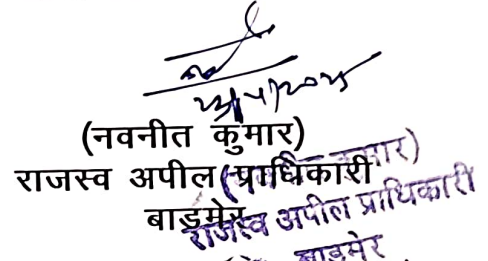 (नवनीत कुमार)
राजस्व अपील प्राधिकारी
बाड़मेर
कुमार)
राजस्व अपील प्राधिकारी
बाड़मेर